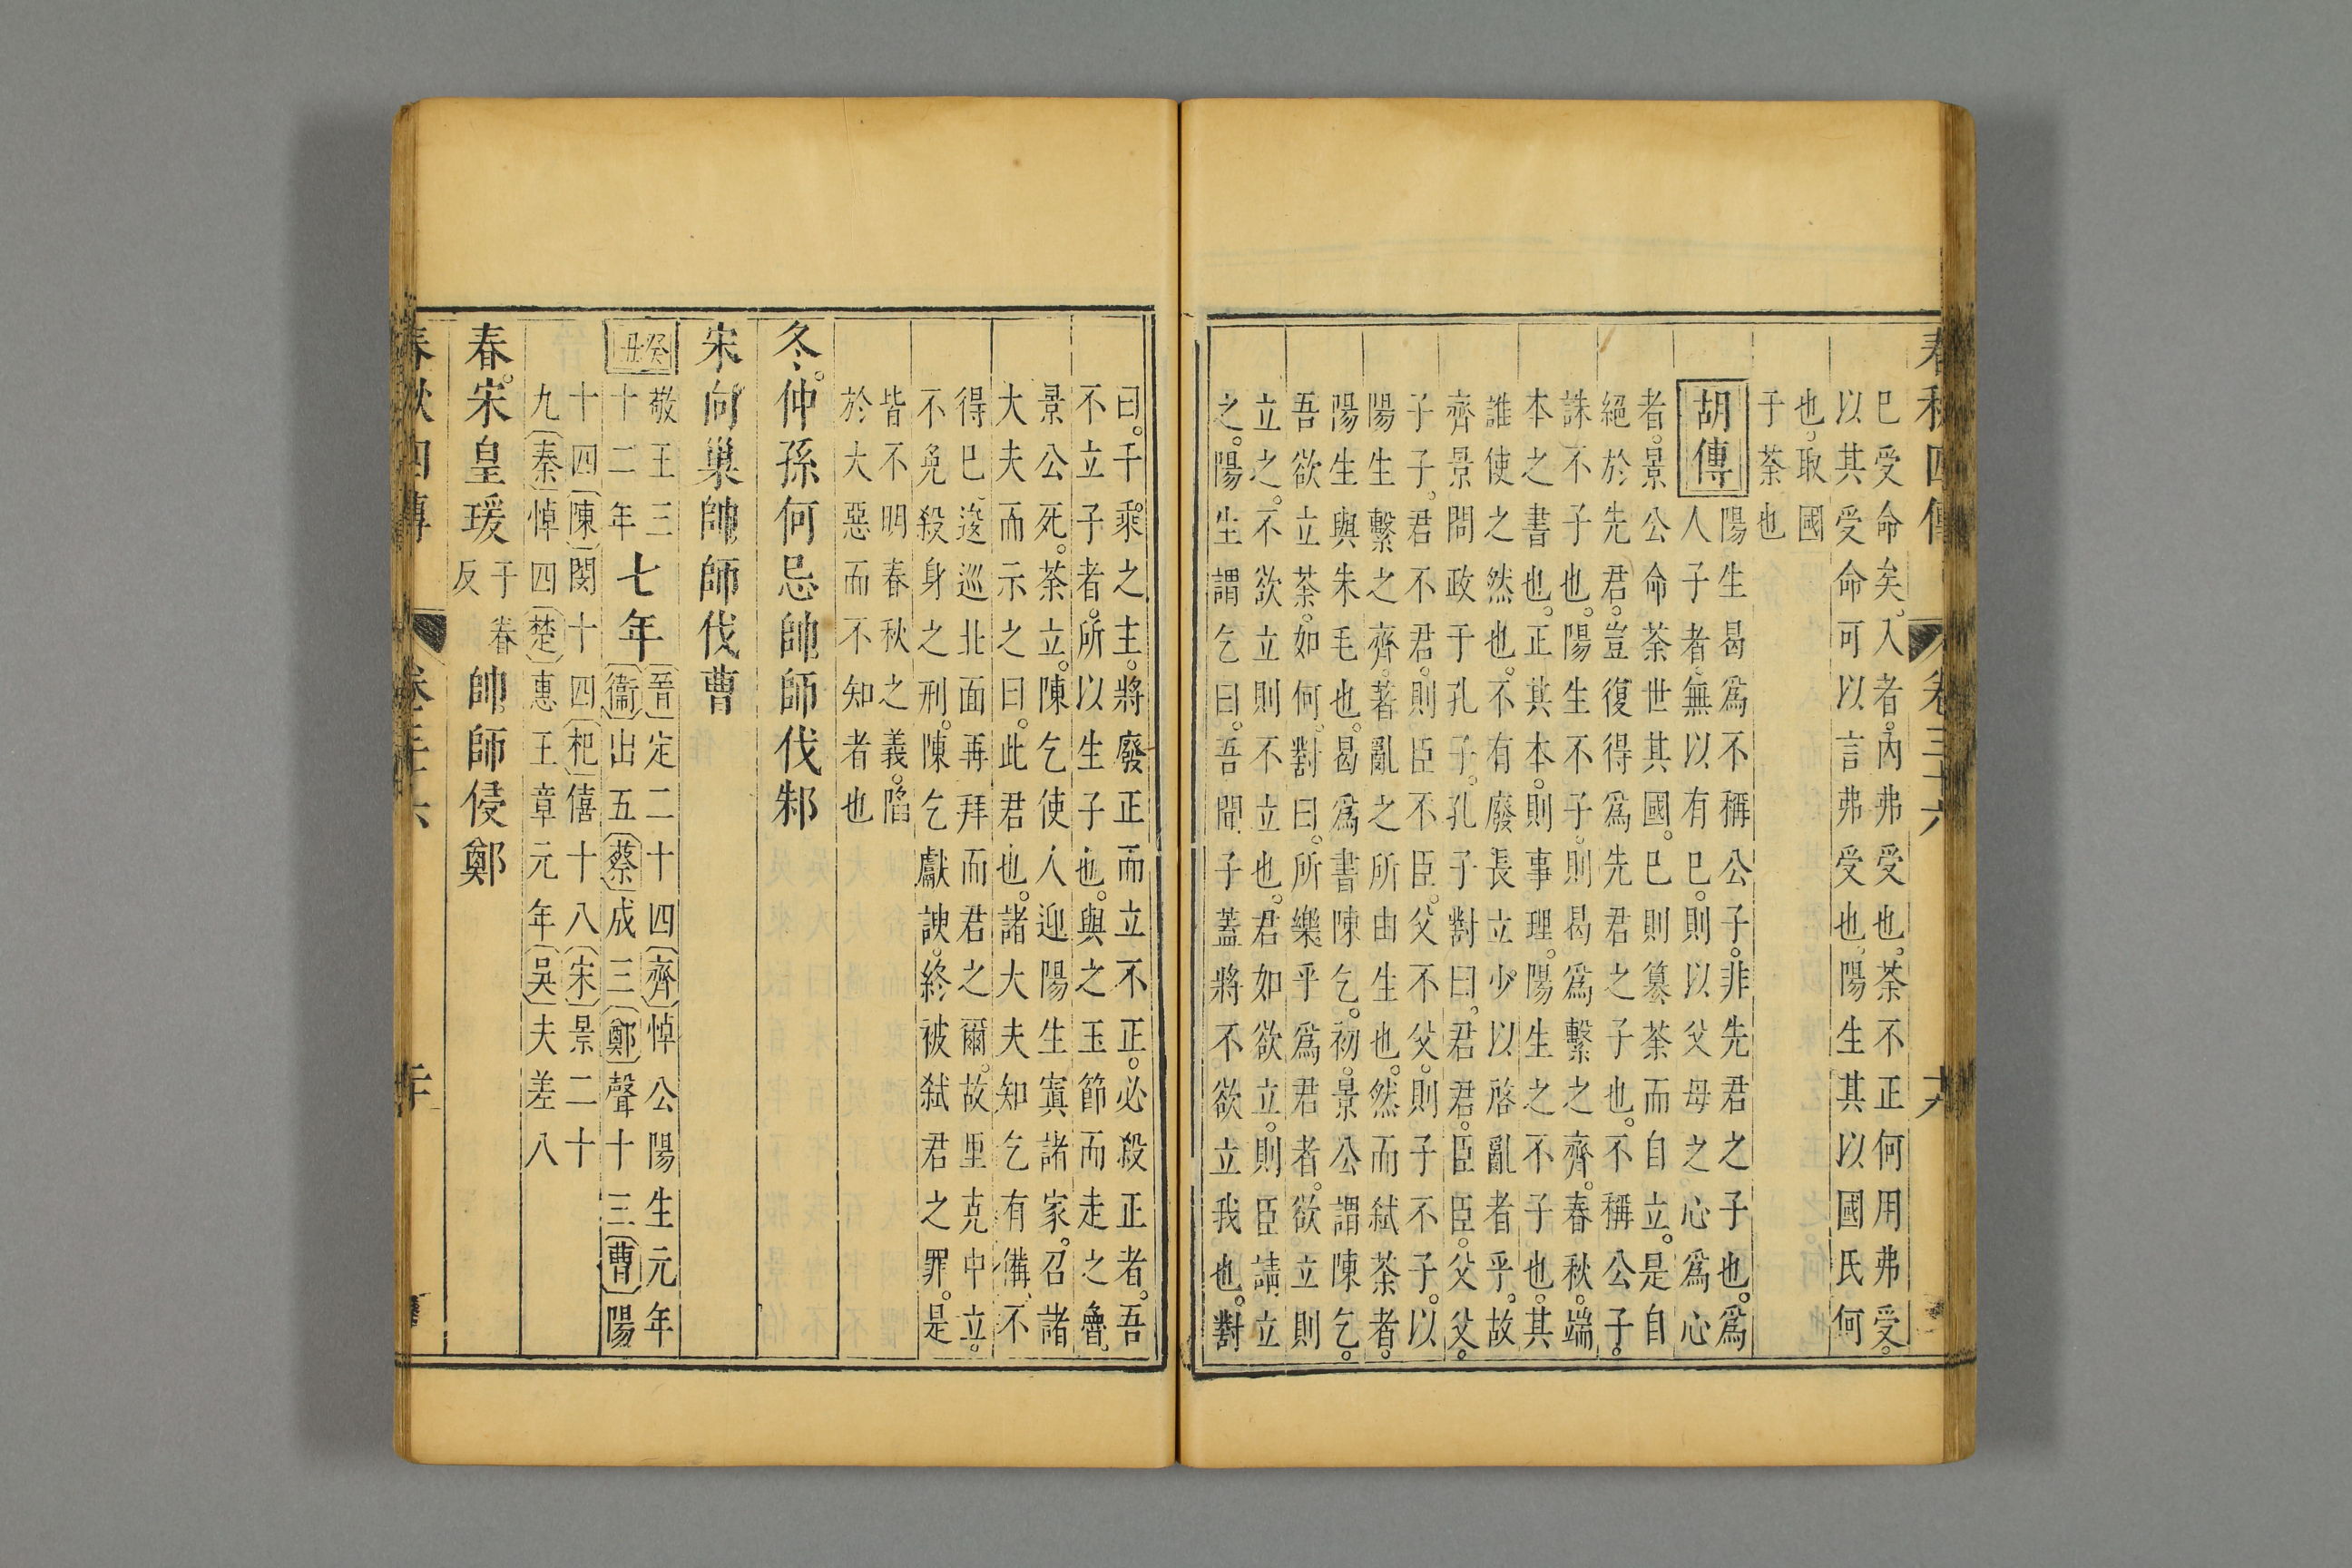 春秋四傳 卷三十六 十九
已受命矣入者內弗受也荼不正何用弗受
以其受命可以言弗受也陽生其以國氏何
也取國
于荼也
胡傳
陽生曷爲不稱公子非先君之子也爲
人子者無以有已則以父母之心爲心
者景公命荼世其國已則篡荼而自立是自
絕於先君豈復得爲先君之子也不稱公子
誅不子也陽生不子則曷爲繫之齊春秋端
本之書也正其本則事理陽生之不子也其
誰使之然也不有廢長立少以啓亂者乎故
齊景問政于孔子孔子對曰君君臣臣父父
子子君不君則臣不臣父不父則子不子以
陽生繫之齊著亂之所由生也然而弑荼者
陽生與朱毛也曷爲書陳乞初景公謂陳乞
吾欲立荼如何對曰所樂乎爲君者欲立則
立之不欲立則不立也君如欲立則臣請立
之陽生謂乞曰吾聞子蓋將不欲立我也對
曰千乘之主將廢正而立不正必殺正者吾
不立子者所以生子也與之玉節而走之魯
景公死荼立陳乞使人迎陽生寘諸家召諸
大夫而示之曰此君也諸大夫知乞有備不
得已逡巡北面再拜而君之爾故里克中立
不免殺身之刑陳乞獻諛終被弑君之罪是
皆不明春秋之義陷
於大惡而不知者也
冬仲孫何忌帥師伐邾
宋向巢帥師伐曹
癸丑
敬王三
十二年
七年
晉定二十四齊悼公陽生元年
衞出五蔡成三鄭聲十三曹陽
十四陳閔十四杞僖十八宋景二十
九秦悼四楚惠王章元年吳夫差八
春宋皇瑗于眷反帥師侵鄭
春秋四傳 卷三十六 二十